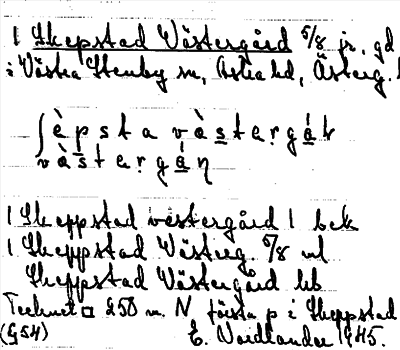 1 Skepstad Västergård 5/8 jr. gd
i Västra Stenby sn, Aska hd, Österg. l
ʃè p s t a v ä s t ə r g å r
v ä s t ə r g å ɳ
1 Skeppstad västergård 1 bek
1 Skeppstad Västerg. 5/8 ml
Skeppstad Västergård kb
Tecknet □ 250 m. N första p i Skeppstad
(G54) E. Nordlander 1945.